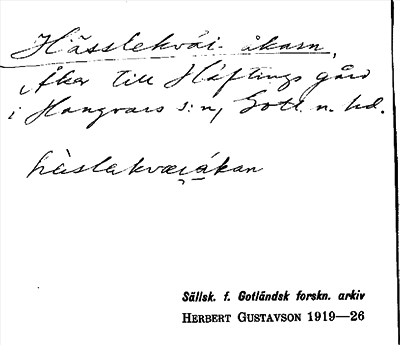 Hässlekväi-åkarn,
Åker till Häftings gård
i Hangvars s:n, Gotl. n. hd.
hä̀slakvæi̯ákan
Sällsk. f. Gotländsk forskn. arkiv
HERBERT GUSTAVSON 1919—26